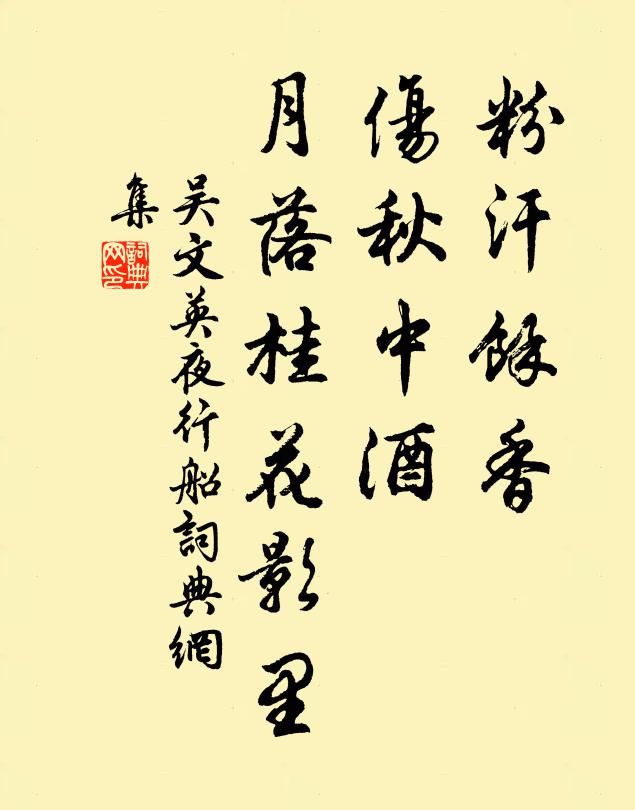 粉汗餘香
傷秋中酒
月落桂花影里
吴文英夜行船詞典網
集
詞典网印